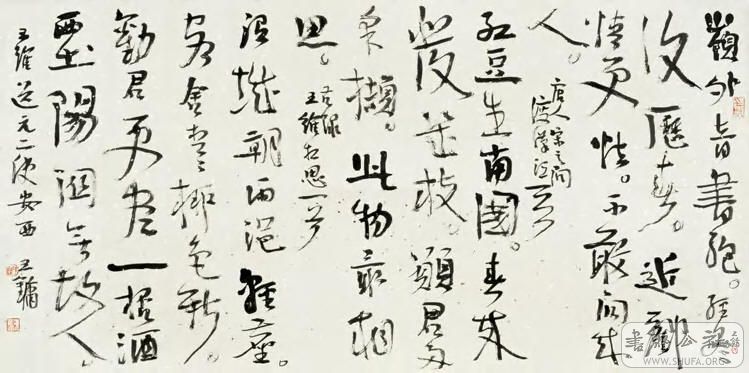 嶺外音書絕。經冬
復歷春。近鄉
情更怯。不敢問來
人。
唐人宋之問
渡漢江一首
紅豆生南國。春來
發幾枝。願君多
采擷。此物最相
思。
右錄
王維相思一首
渭城朝雨浥輕塵。
客舍青青柳色新。
勸君更盡一杯酒
西出陽關無故人。
王維送元二使安西 王鏞
WWW.SHUFA.ORG